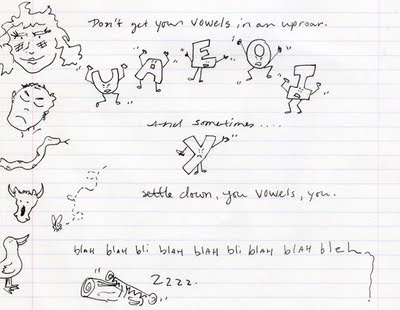 Don't get your vowels in an uproar.
U A E O I
And sometimes....
Y
settle down, you vowels, you.
blAH blAH bli blAH blAH bli blAH blAH bleh
Zzzz.